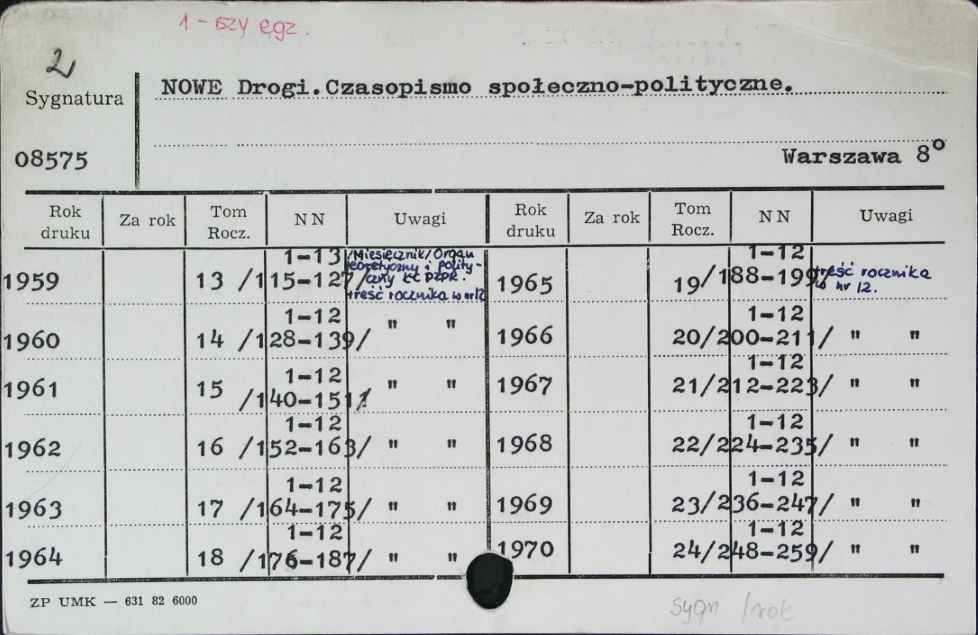 1-szy egz.
2
Sygnatura
NOWE Drogi.Czasopismo społeczno-polityczne.
08575
Warszawa 8°
Rok druku Za rok Tom Rocz. NN Uwagi Rok druku Za rok Tom Rocz. NN Uwagi
1959 13 1-13 /115-127/ /Miesięcznik/Organ
teoretyczny i polity-
czny KC PZPR.
treść rocznika w nr 12
1965 19 1-12 /188-199/ treść rocznika
w nr 12.
1960 14 1-12 /128-139/ " " 1966 20 1-12 /200-211/ " "
1961 15 1-12 /140-151/ " " 1967 21 1-12 /212-223/ " "
1962 16 1-12 /152-163/ " " 1968 22 1-12 /224-235/ " "
1963 17 1-12 /164-175/ " " 1969 23 1-12 /236-247/ " "
1964 18 1-12 /176-187/ " " 1970 24 1-12 /248-259/ " "
ZP UMK — 631 82 6000
sygn /rok